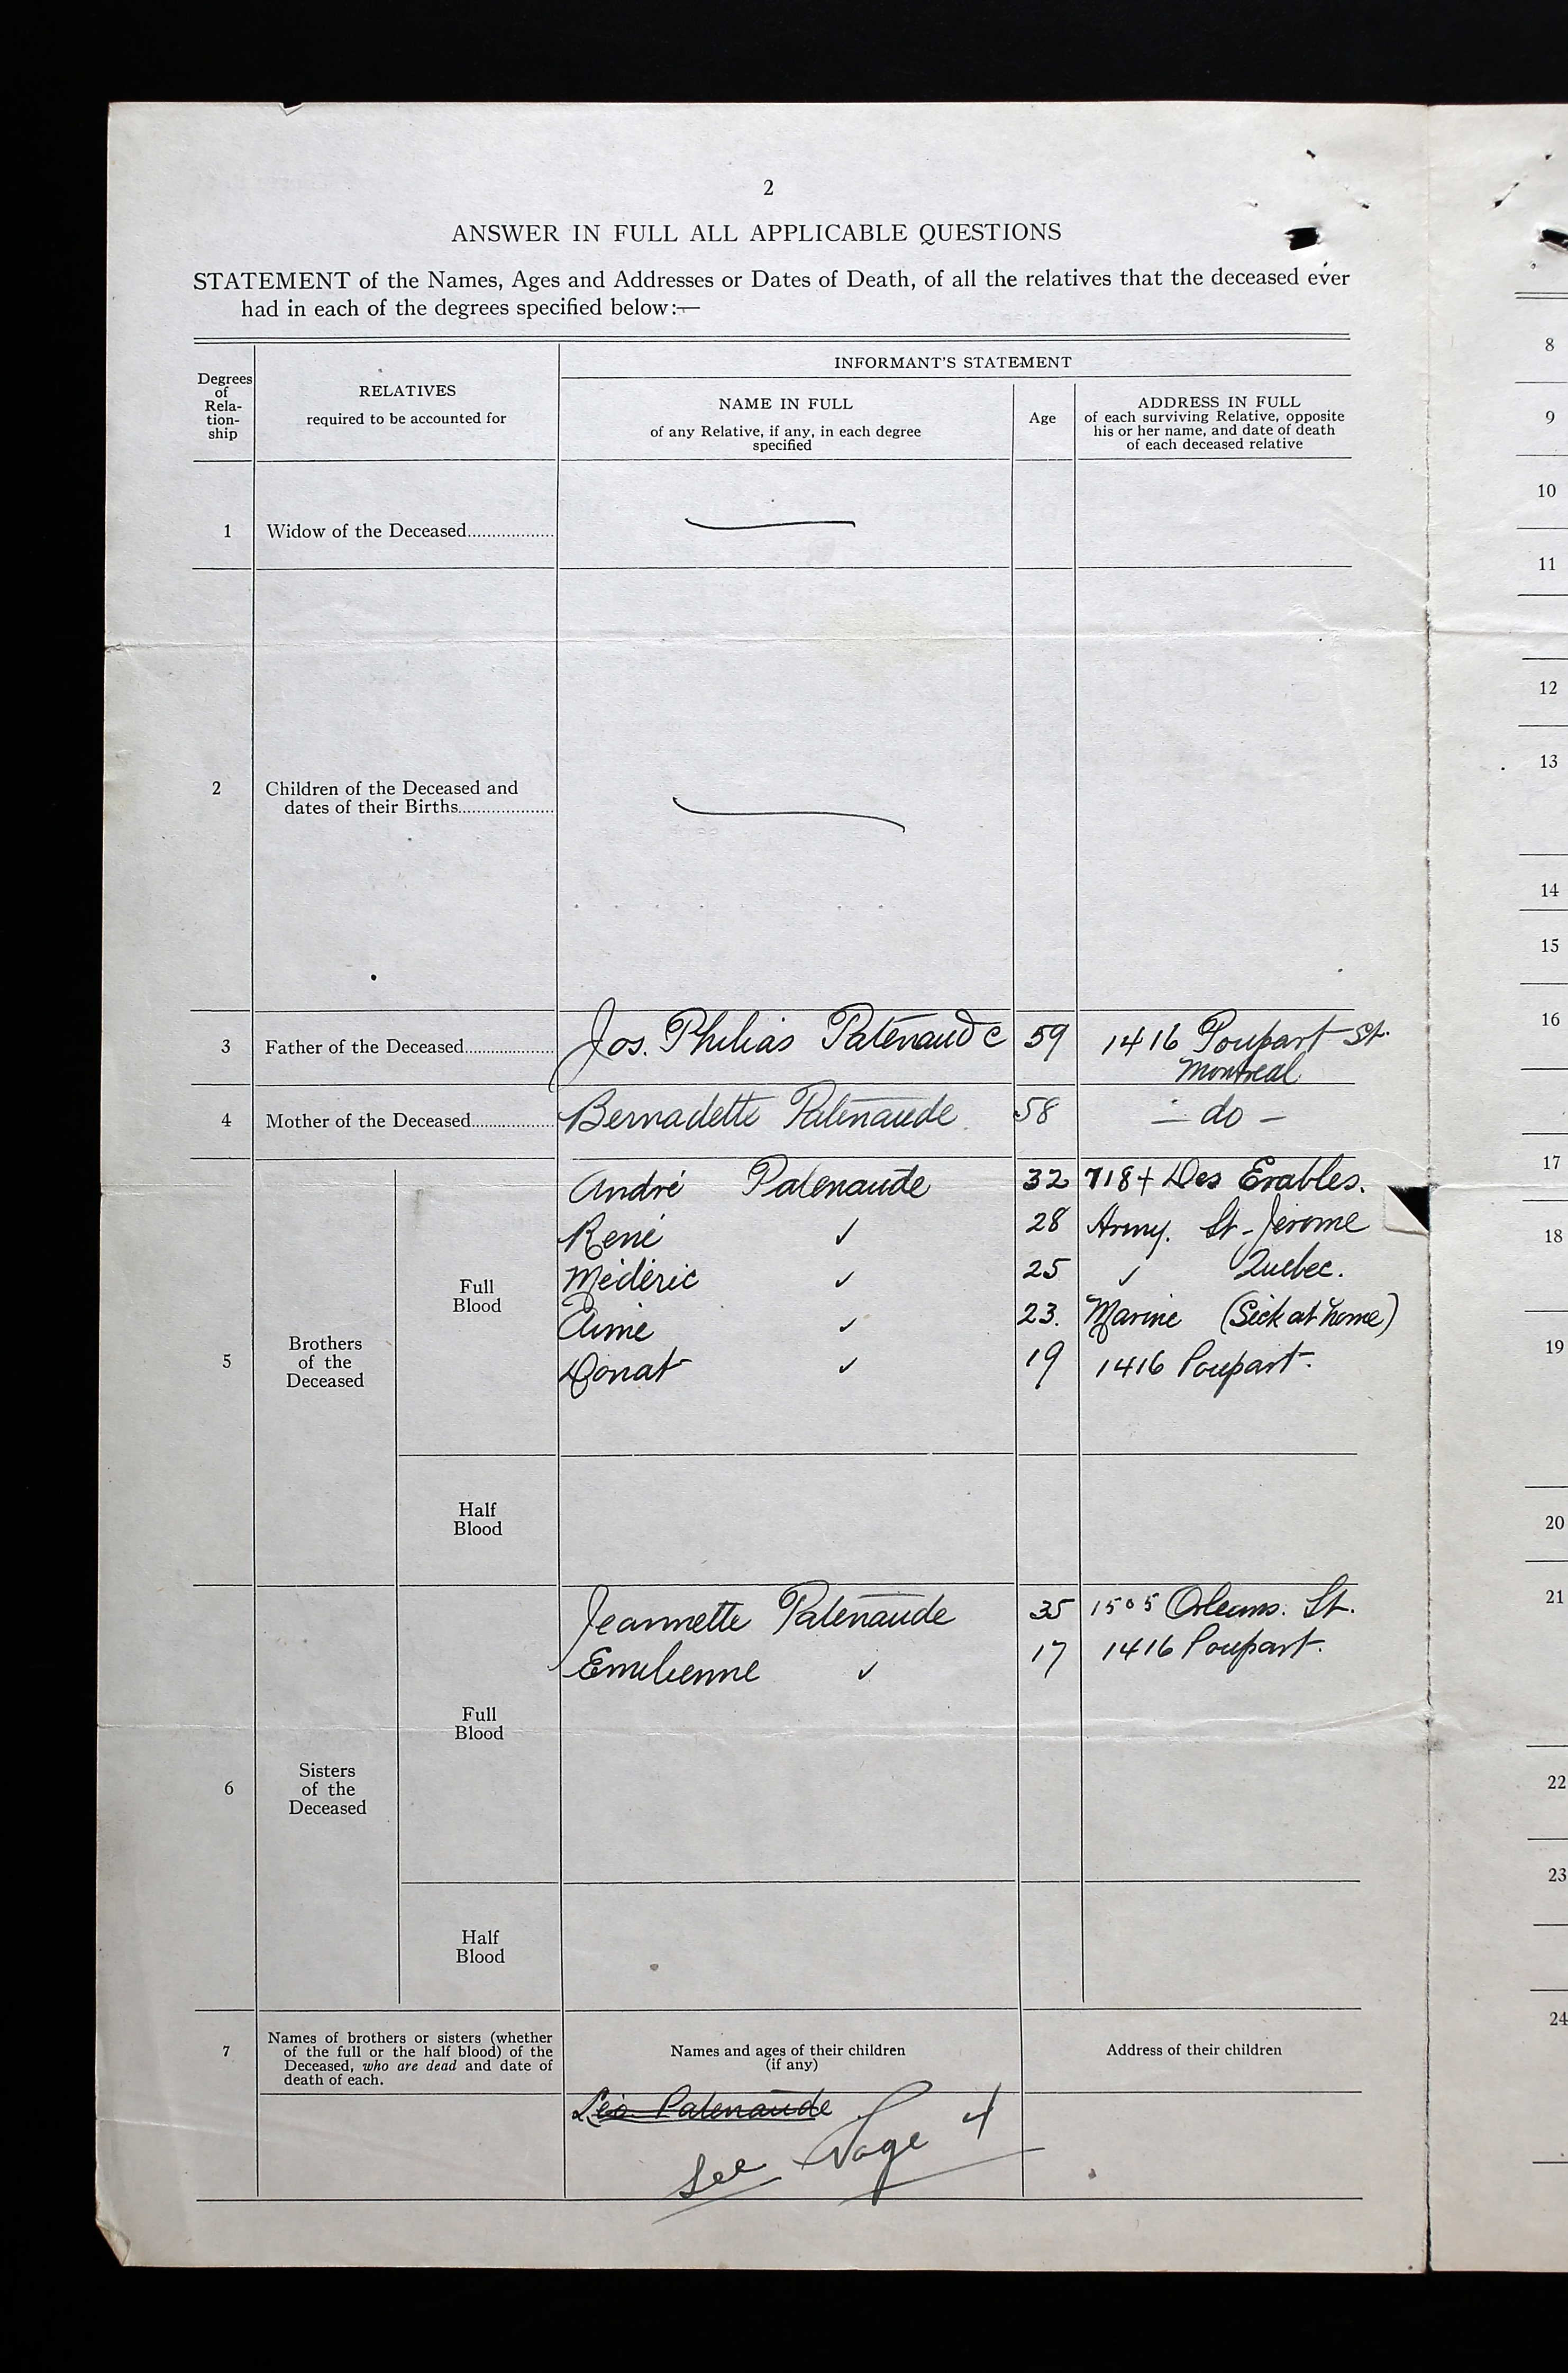 2
ANSWER IN FULL ALL APPLICABLE QUESTIONS
STATEMENT of the Names, Ages and Addresses or Dates of Death, of all the relatives that the deceased ever
had in each of the degrees specified below:—
Degrees
of
Rela-
tion-
ship
RELATIVES
required to be accounted for
INFORMANT'S STATEMENT
NAME IN FULL
of any Relative, if any, in each degree
specified
Age
ADDRESS IN FULL
of each surviving Relative, opposite
his or her name, and date of death
of each deceased relative
1 Widow of the Deceased..................
2 Children of the Deceased and
dates of their Births....................
3 Father of the Deceased..................... Jos. Philias Patenaude 59 1416 Poupart St.
Montreal
4 Mother of the Deceased.................. Bernadette Patenaude 58 — do —
5 Brothers
of the
Deceased
Full
Blood
André Patenaude 32 7184 Des Erables.
René ✓ 28 Army. St-Jerome
Médéric ✓ 25 ✓ Quebec.
Aimé ✓ 23. Marine (Sick at home)
Donat ✓ 19 1416 Poupart.
Half
Blood
6 Sisters
of the
Deceased
Full
Blood
Jeannette Patenaude 35 1505 Orleans. St.
Emilienne ✓ 17 1416 Poupart.
Half
Blood
7 Names of brothers or sisters (whether
of the full or the half blood) of the
Deceased, who are dead and date of
death of each.
Names and ages of their children
(if any)
Address of their children
Léo Patenaude
See Page 4
8
9
10
11
12
13
14
15
16
17
18
19
20
21
22
23
24